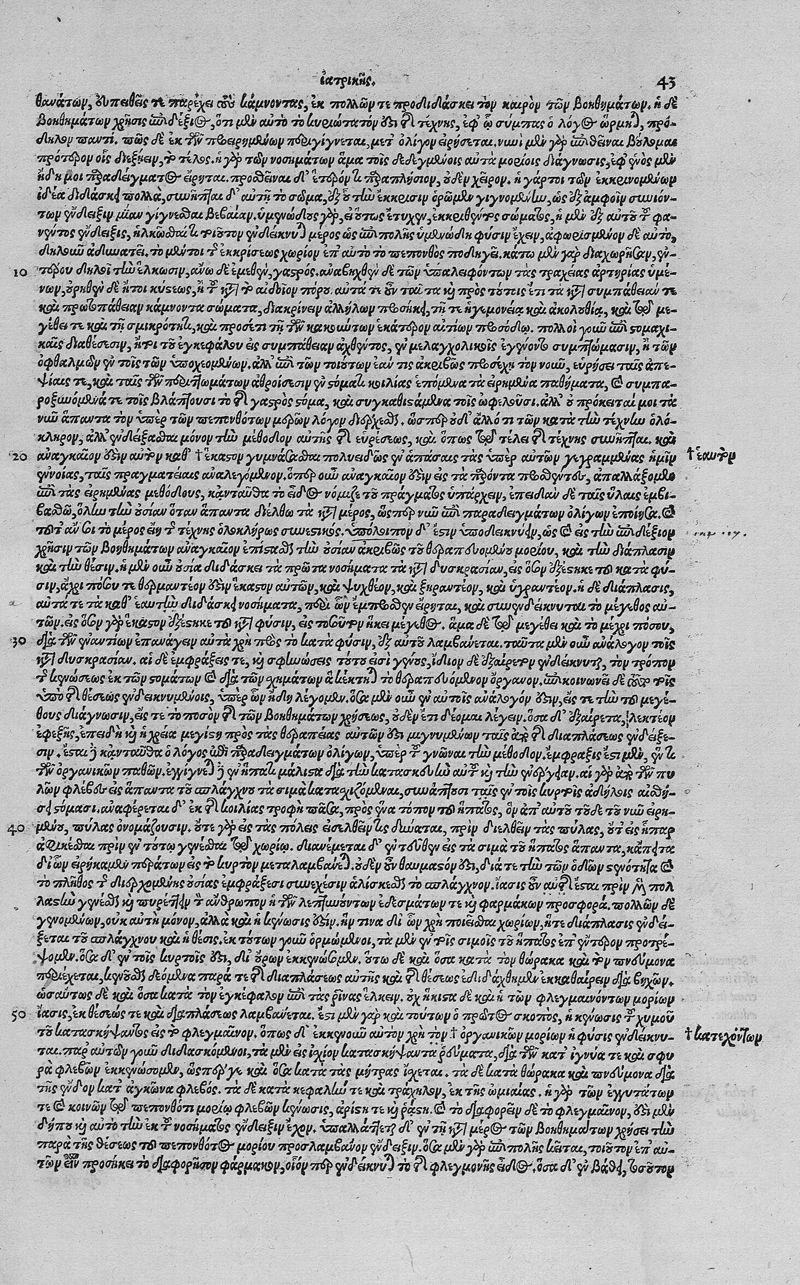 ἰατρικῆς. 43
θανάτων, εὐπειθεῖς τε παρέχει τοὺς κάμνοντας, ἐκ πολλῶν τε προδιδάσκει τὸν καιρὸν τῶν βοηθημάτων. ἡ δὲ
βοηθημάτων χρῆσις ἐπὶ δέξιος, ὅτι μὲν αὐτὸ τὸ κυριώτατόν ἐστι τῆς τέχνης, ἐφ' ᾧ σύμπας ὁ λόγος ὥρμηται, πρό-
δηλον παντί. πῶς δὲ ἐκ τῶν προειρημένων περιγίγνεται, μετ' ὀλίγον εἰρήσεται. νυνὶ μὲν γὰρ ἐπιθεῖναι βούλομαι
πρότερον οἷς διέξειμι, τὸ τέλος. ἡ γὰρ τῶν νοσημάτων ἅμα τοῖς δεδεγμένοις αὐτὰ μορίοις διάγνωσις, ἐφ' ἑνὸς μὲν
ἤδη μοι παραδείγματος εἴρηται. προσθεῖναι δ' ἕτερόν τι παραπλήσιον, οὐδὲν χεῖρον. ἡ γάρ τοι τῶν ἐκκρινομένων
ἰδέα διδάσκει πολλά, συνῆπται δ' αὐτῇ τὸ σῶμα, δι' οὗ τὴν ἔκκρισιν ὁρῶμεν γιγνομένην, ὡς ἐξ ἀμφοῖν συνιόν-
των ἔνδειξιν μίαν γίγνεσθαι βεβαίαν. ὑμενώδους γὰρ, εἰ οὕτως ἔτυχεν, ἐκκριθέντος σώματος, ἡ μὲν ἐξ αὐτοῦ τοῦ φα-
νέντος ἔνδειξις, ἡλκῶσθαί τι τοιοῦτον ἐνδείκνυται μέρος ὡς ἐπὶ πολὺ ὑμενώδη φύσιν ἔχειν, ἀφωρισμένον δὲ αὐτὸ,
δηλοῦν ἀδυνατεῖ. τὸ μέντοι τῆς ἐκκρίσεως χωρίον ἐπ' αὐτὸ τὸ πεπονθὸς ποδηγεῖ. κάτω μὲν γὰρ διαχωρῆσαν, ἐν-
10 τέρου δηλοῖ τὴν ἕλκωσιν, ἄνω δὲ ἐμεθὲν, γαστρός. ἀναβηχθὲν δὲ τῶν ὑπαλειφόντων τὰς τραχείας ἀρτηρίας ὑμέ-
νων, οὐρηθὲν δὲ ἤτοι κύσεως, ἢ τοῦ κατὰ τὸ αἰδοῖον πόρου. αὐτά τε οὖν ταῦτα καὶ πρὸς τούτοις ἔτι τὰ κατὰ συμπάθειάν τε
καὶ πρωτοπάθειαν κάμνοντα σώματα, διακρίνειν ἀλλήλων προσήκει, τῇ τε ἡγεμονείᾳ καὶ ἀκολουθίᾳ, καὶ τῷ με-
γέθει τε καὶ τῇ σμικρότητι, καὶ προσέτι τῇ τῶν κακούντων ἑκάτερον αἰτίων προσόδῳ. πολλοὶ γοῦν ἐπὶ στομαχι-
καῖς διαθέσεσιν, ἤτοι τοῦ ἐγκεφάλου εἰς συμπάθειαν ἀχθέντος, ἐν μελαγχολικοῖς ἐγένοντο συμπτώμασιν, ἢ τῶν
ὀφθαλμῶν ἐν τοῖς τῶν ὑποχεομένων. ἀλλ' ἐπὶ τῶν τοιούτων ἐάν τις ἀκριβῶς προσέχῃ τὸν νοῦν, εὑρήσει ταῖς ἀπε-
ψίαις τε, καὶ ταῖς τῶν περιττωμάτων ἀθροίσεσιν ἐν στόματι κοιλίας ἑπόμενα τὰ εἰρημένα παθήματα, καὶ συμπα-
ροξυνόμενά τε τοῖς βλάπτουσι τὸ τῆς γαστρὸς στόμα, καὶ συγκαθιστάμενα τοῖς ὠφελοῦσι. ἀλλ' οὐ πρόκειταί μοι τὰ
νῦν ἅπαντα τὸν ὑπὲρ τῶν πεπονθότων μερῶν λόγον διέρχεσθαι. ὥσπερ οὐδ' ἄλλό τι τῶν κατὰ τὴν τέχνην ὁλό-
κληρον, ἀλλ' ἐνδείξασθαι μόνον τὴν μέθοδον αὐτῆς τῆς εὑρέσεως, καὶ ὅπως τῷ τέλει τῆς τέχνης συνῆπται. καὶ
20 ἀναγκαῖόν ἐστιν αὐτὸν καθ' † ἕκαστον γυμνάσασθαι πολυειδῶς ἐν ἁπάσαις ταῖς ὑπὲρ αὐτῶν γεγραμμέναις ἡμῖν † ἑαυτὸν
ἐννοίας, ταῖς πραγματείαις ἀναλεγόμενον. ὅπερ οὖν ἀναγκαῖόν ἐστιν εἰς τὰ παρόντα προσθέντας, ἀπαλλάξομαι
ἐπὶ τὰς εἰρημένας μεθόδους, κἀνταῦθα τὸ εἶδος νόμιζε τοῦ πράγματος ὑπάρχειν, ἐπειδὰν δὲ ταῖς ὕλαις ἐμβι-
βασθῶ, ὅλην τὴν οὐσίαν ὅταν ἅπαντα διέλθω τὰ κατὰ μέρος, ὥσπερ νῦν ἐπὶ παραδειγμάτων ὀλίγων ἐποίησα. καὶ
τοῦτ' ἂν ὑμῖν τὸ μέρος εἴη τῆς τέχνης ὁλοκλήρως συνεστικός. ὑπόλοιπον δ' ἐστὶν ὑποδεικνύναι, ὡς καὶ εἰς τὴν ἐπιδέξιον
χρῆσιν τῶν βοηθημάτων ἀναγκαῖον ἐπίστασθαι τὴν οὐσίαν ἀκριβῶς τοῦ θεραπευομένου μορίου, καὶ τὴν διάπλασιν
καὶ τὴν θέσιν. ἡ μὲν οὖν οὐσία διδάσκει τὰ πρῶτα νοσήματα τὰ κατὰ δυσκρασίαν, εἰς ὅσον ἐξέστηκε τοῦ κατὰ φύ-
σιν, ἄχρι πόσου τε θερμαντέον ἐστὶν ἕκαστον αὐτῶν, καὶ ψυκτέον, καὶ ξηραντέον, καὶ ὑγραντέον. ἡ δὲ διάπλασις,
αὐτά τε τὰ καθ' ἑαυτὴν διδάσκει νοσήματα, περὶ ὧν ἔμπροσθεν εἴρηται, καὶ συνενδείκνυται τὸ μέγεθος αὐ-
τῶν. εἰς ὅσον γὰρ ἕκαστον ἐξέστηκε τοῦ κατὰ φύσιν, εἰς τοσοῦτον ἥκει μεγέθους. ἅμα δὲ τῷ μεγέθει καὶ τὸ μέχρι πόσου,
30 διὰ τῶν ἐναντίων ἐπανάγειν αὐτὰ χρὴ πρὸς τὸ κατὰ φύσιν, ἐξ αὐτοῦ λαμβάνεται. ταῦτα μὲν οὖν ἀνάλογον τοῖς
κατὰ δυσκρασίαν. αἱ δὲ ἐμφράξεις τε, καὶ σφηνώσεις τοῦτο εἰσὶ γένος, ἴδιον δὲ ἐξαίρετον ἐνδείκνυται, τὸν τρόπον
τῆς κενώσεως ἐκ τῶν σωμάτων καὶ διὰ τῶν σχημάτων ἃ κέκτηται τὸ θεραπευόμενον ὄργανον. ἐπικοινωνεῖ δὲ ταῦτα τοῖς
ὑπὸ τῆς θέσεως ἐνδεικνυμένοις, ὑπὲρ ὧν ἤδη λέγομεν. ὅσα μὲν οὖν ἐν αὐτοῖς ἀνάλογόν ἐστιν, εἴς τε τὴν τοῦ μεγέ-
θους διάγνωσιν, εἴς τε τὸ ποσὸν τῆς τῶν βοηθημάτων χρήσεως, οὐδὲν ἔτι δέομαι λέγειν. ὅσα δ' ἐξαίρετα, λεκτέον
ἐφεξῆς, ἐπειδὴ καὶ ἡ χρεία μεγίστη πρὸς τὰς θεραπείας αὐτῶν ἐστι μιγνυμένων ταῖς ἀπὸ τῆς διαπλάσεως ἐνδείξε-
σιν. ἔσται δὲ κἀνταῦθα ὁ λόγος ἐπὶ παραδειγμάτων ὀλίγων, ὑπὲρ τοῦ γνῶναι τὴν μέθοδον. ἔμφραξις ἔστι μὲν, ἕν τι
τῶν ὀργανικῶν παθῶν. ἐγγίνεται δὲ ἐν ἥπατι μάλιστα διὰ τὴν κατασκευὴν αὐτοῦ καὶ τὴν ἐνέργειαν. αἱ γὰρ ἀπὸ τῶν πυ-
λῶν φλέβες εἰς ἅπαντα τοῦ σπλάγχνου τὰ σιμὰ κατασχιζόμεναι, συνάπτουσι ταῖς ἐν τοῖς κυρτοῖς ἀδήλοις αἰσθή-
σει στόμασι. ἀναφέρεται δ' ἐκ τῆς κοιλίας τροφὴ πᾶσα, πρὸς ἕνα τόπον τοῦ ἥπατος, ὃν ἀπ' αὐτοῦ τοῦδε τοῦ νῦν εἰρη-
40 μένου, πύλας ὀνομάζουσιν. οὔτε γὰρ εἰς τὰς πόλεις εἰσελθεῖν τις δύναται, πρὶν διελθεῖν τὰς πύλας, οὔτ' εἰς ἧπαρ
ἀφικέσθαι πρὶν ἐν τούτῳ γενέσθαι τῷ χωρίῳ. διανέμεται δ' ἐντεῦθεν εἰς τὰ σιμὰ τοῦ ἥπατος ἅπαντα, κἄπειτα
δι' ὧν εἰρήκαμεν περάτων εἰς τὸ κυρτὸν μεταλαμβάνεται. οὐδὲν οὖν θαυμαστόν ἐστι, διά τε τὴν τῶν ὁδῶν στενότητα καὶ
τὸ πλῆθος τῆς διερχομένης οὐσίας ἐμφράξεσι συνεχέσιν ἁλίσκεσθαι τὸ σπλάγχνον. ἴασις οὖν αὐτῆς ἔσται πρὶν μὲν πολ
λαστὴν γενέσθαι καὶ πυρέξαι τὸν ἄνθρωπον ἡ τῶν λεπτυνόντων ἐδεσμάτων τε καὶ φαρμάκων προσφορά. πολλῶν δὲ
γιγνομένων, οὐκ αὕτη μόνον, ἀλλὰ καὶ ἡ κένωσίς ἐστιν. ἥν τινα δι' ὧν χρὴ ποιεῖσθαι χωρίων, ἥ τε διάπλασις ἐνδεί-
ξεται τοῦ σπλάγχνου καὶ ἡ θέσις. ἐκ τούτων γοῦν ὁρμώμενοι, τὰ μὲν ἐν τοῖς σιμοῖς τοῦ ἥπατος ἐπ' ἔντερον προτρέ-
ψομεν. ὅσα δ' ἐν τοῖς κυρτοῖς ἐστι, δι' οὔρων ἐκκενώσομεν. οὕτω δὲ καὶ ὅσα κατὰ τὸν θώρακα καὶ τὸν πνεύμονα
περιέχεται, κενοῦσθαι δεόμενα παρά τε τῆς διαπλάσεως αὐτῆς καὶ τῆς θέσεως ἐδιδάχθημεν ἐκκαθαίρειν διὰ βηχῶν.
ὡσαύτως δὲ καὶ ὅσα κατὰ τὸν ἐγκέφαλον ἐπὶ τὰς ῥῖνας ἕλκειν. οὐχ ἥκιστα δὲ καὶ ἡ τῶν φλεγμαινόντων μορίων
50 ἴασις, ἐκ θέσεώς τε καὶ διαπλάσεως λαμβάνεται. ἔστι μὲν γὰρ καὶ τούτων ὁ πρῶτος σκοπὸς, ἡ κένωσις τοῦ χυμοῦ
τοῦ κατασκήψαντος εἰς τὸ φλεγμαῖνον. ὅπως δ' ἐκκενοῦν αὐτὸν χρὴ τοῦ † ὀργανικῶν μορίων ἡ φύσις ἐνδείκνυ- † κατεχόντων
ται. παρ' αὐτῶν γοῦν διδασκόμενοι, τὰ μὲν εἰς ἰσχίον κατασκήψαντα ῥεύματα, διὰ τῶν κατ' ἰγνύα τε καὶ σφυ
ρὰ φλεβῶν ἐκκενώσομεν, ὥσπερ γε καὶ ὅσα κατὰ τὰς μήτρας ἴσχεται. τὰ δὲ κατὰ θώρακα καὶ πνεύμονα διὰ
τῆς ἔνδον κατ' ἀγκῶνα φλεβός. τὰ δὲ κατὰ κεφαλήν τε καὶ τράχηλον, ἐκ τῆς ὠμιαίας. ἡ γὰρ τῶν ἐγγυτάτων
τε καὶ κοινῶν τῷ πεπονθότι μορίῳ φλεβῶν κένωσις, ἀρίστη τε καὶ ῥᾴστη. καὶ τὸ διαφορεῖν δὲ τὸ φλεγμαῖνον, ἐστὶ μὲν
δήπου καὶ αὐτὸ τὴν ἐκ τοῦ νοσήματος ἔνδειξιν ἔχον. ὑπαλλάττεται δ' ἐν τῇ κατὰ μέρος τῶν βοηθημάτων χρήσει τὴν
παρὰ τῆς θέσεως τοῦ πεπονθότος μορίου προσλαμβάνον ἔνδειξιν. ὅσα μὲν γὰρ ἐπιπολῆς κεῖται, τοιοῦτον ἐπ' αὐ-
τῶν εἶναι προσήκει τὸ διαφορῆσον φάρμακον, οἷόν περ ἐνδείκνυται τὸ τῆς φλεγμονῆς εἶδος. ὅσα δ' ἐν βάθει, τοσοῦτον